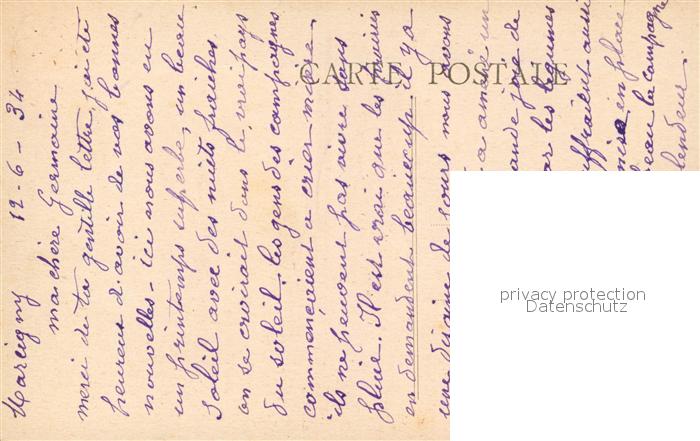 Marcigny 12-6-34
ma chère Germaine
merci de ta gentille lettre, j'ai été
heureux d'avoir de vos bonnes
nouvelles - ici nous avons eu
un printemps superbe, un beau
soleil avec des nuits fraîches
on se croirait dans le vrai pays
du soleil, les gens des campagnes
commençaient a crier misère,
ils ne peuvent pas vivre sans
pluie. Il est vrai que les
en demandent beaucoup. il y a
une dizaine de jours nous avons
a amené un
grande joie de
car les légumes
suffraient aussi
en place
beau la campagne
splendeur.
CARTE POSTALE
privacy protection
Datenschutz